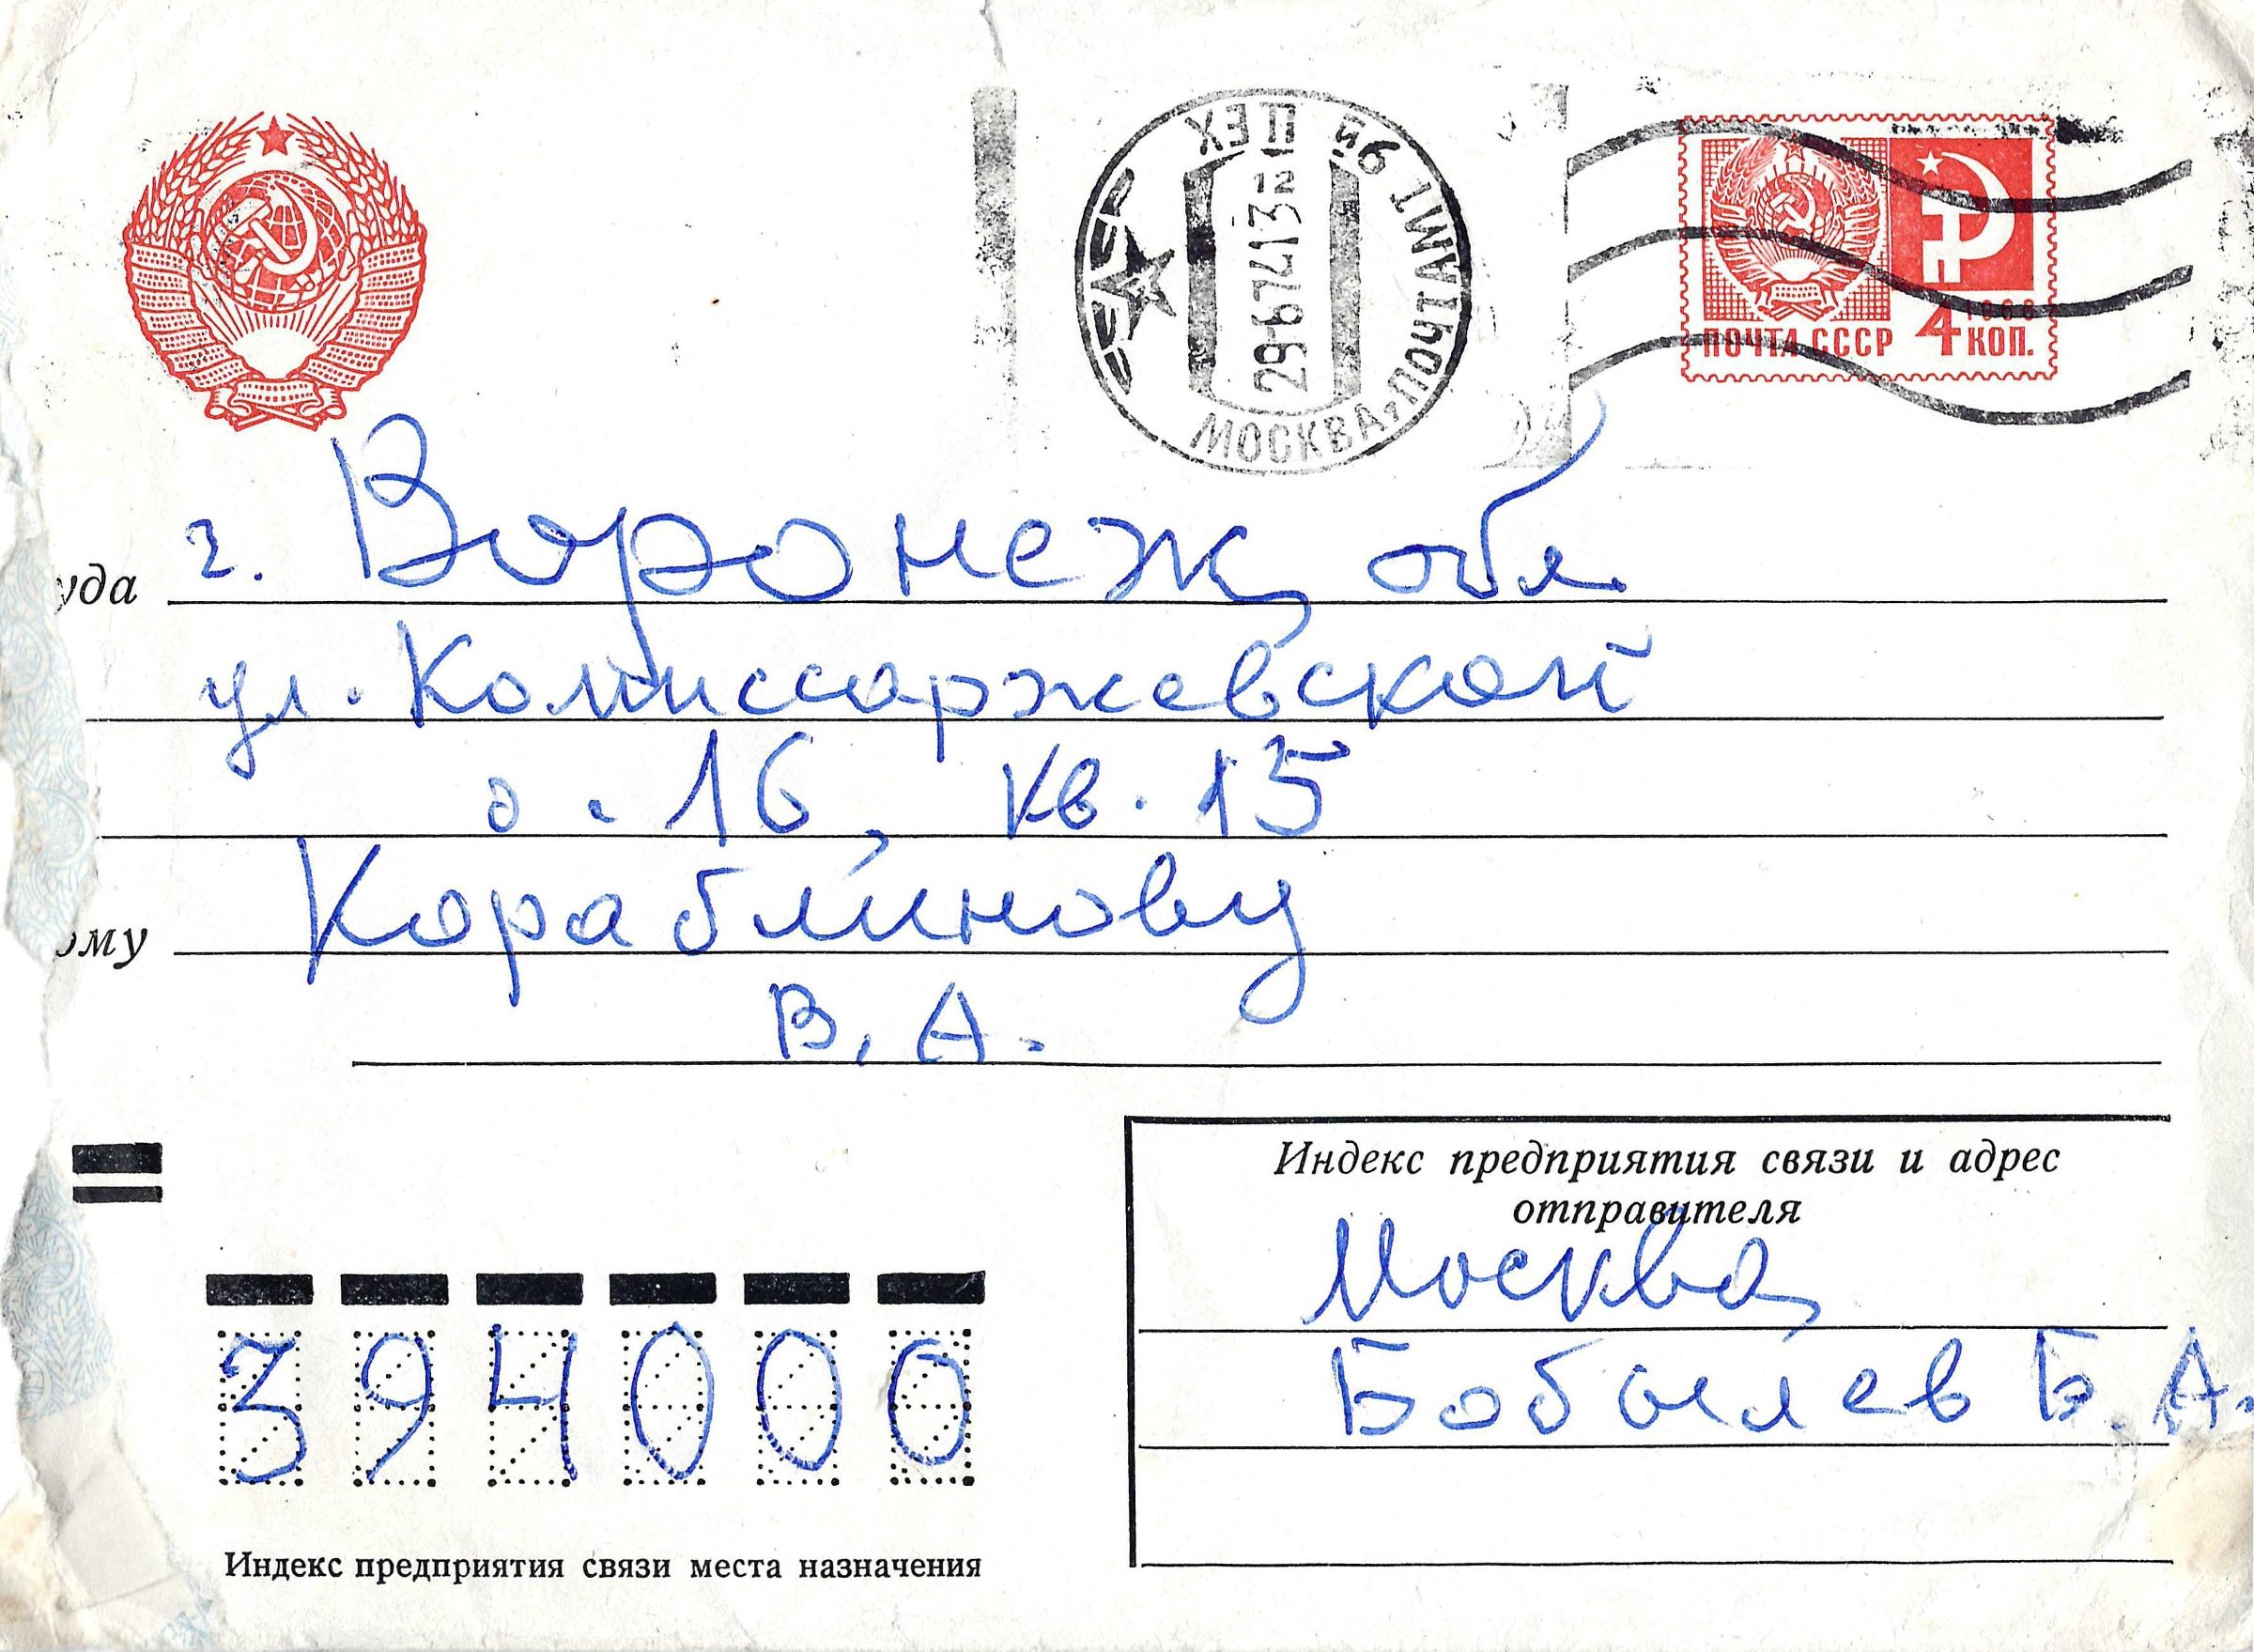 МОСКВА, ПОЧТАМТ 9й ЦЕХ
СССР
29 6 74 13
ПОЧТА СССР 4 КОП.
1966
уда г. Воронеж, обл.
ул. Комиссаржевской
д. 16, кв. 15
ому Кораблинову
В. А.
Индекс предприятия связи и адрес
отправителя
Москва,
Бобылев Б. А.
394000
Индекс предприятия связи места назначения